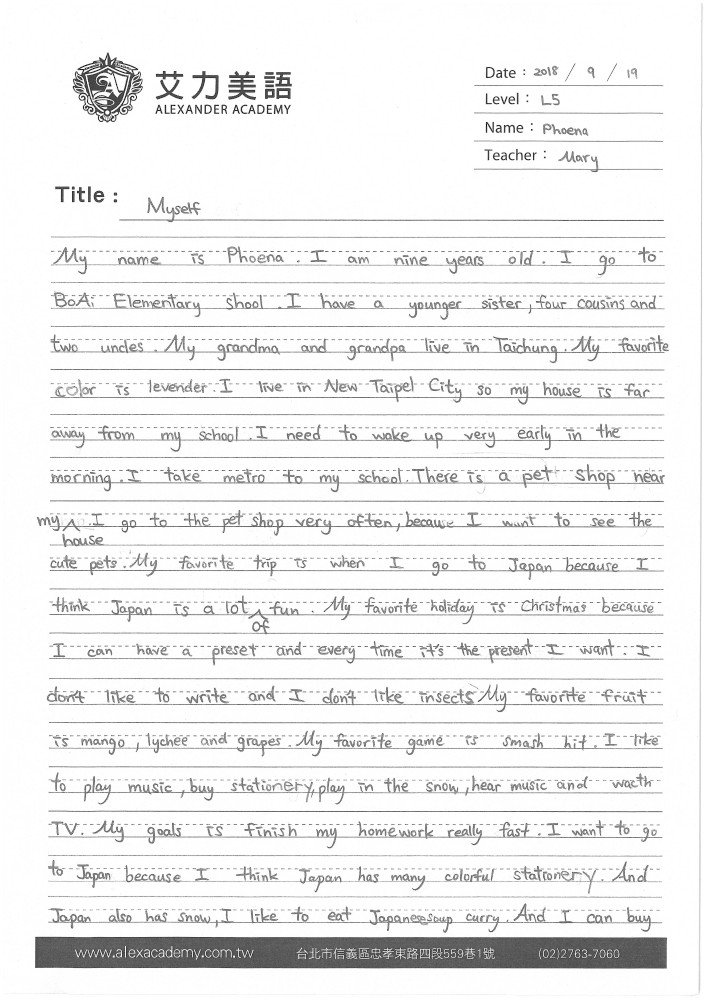 艾力美語
ALEXANDER ACADEMY
Date : 2018 / 9 / 19
Level : L5
Name : Phoena
Teacher : Mary
Title : Myself
My name is Phoena. I am nine years old. I go to
BoAi Elementary shool. I have a younger sister, four cousins and
two uncles. My grandma and grandpa live in Taichung. My favorite
color is levender. I live in New Taipei City so my house is far
away from my school. I need to wake up very early in the
morning. I take metro to my school. There is a pet shop near
my house. I go to the pet shop very often, because I want to see the
cute pets. My favorite trip is when I go to Japan because I
think Japan is a lot of fun. My favorite holiday is Christmas because
I can have a preset and every time it's the present I want. I
don't like to write and I don't like insects. My favorite fruit
is mango, lychee and grapes. My favorite game is smash hit. I like
to play music, buy stationery, play in the snow, hear music and wacth
TV. My goals is finish my homework really fast. I want to go
to Japan because I think Japan has many colorful stationery. And
Japan also has snow, I like to eat Japanese soup curry. And I can buy
www.alexacademy.com.tw 台北市信義區忠孝東路四段559巷1號 (02)2763-7060